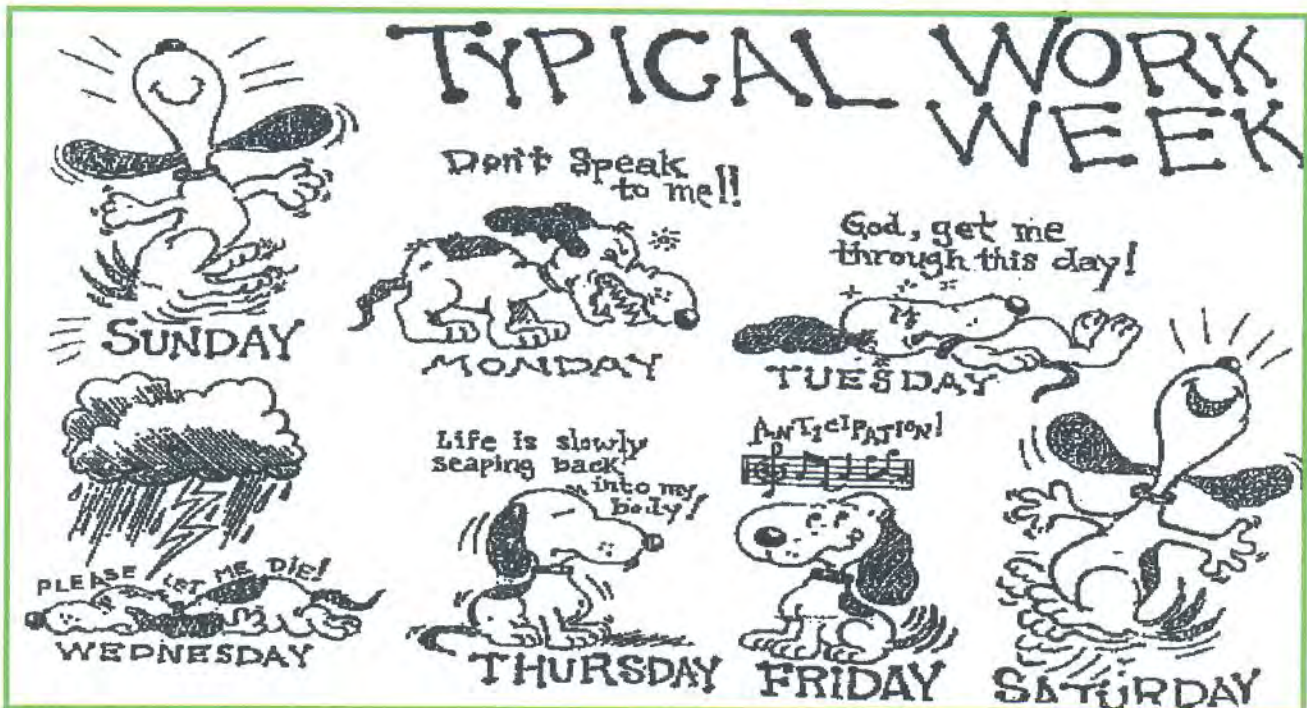 TYPICAL WORK
WEEK
SUNDAY
Don't Speak
to me!!
MONDAY
God, get me
through this day!
TUESDAY
PLEASE LET ME DIE!
WEDNESDAY
Life is slowly
seaping back
into my
body!
THURSDAY
ANTICIPATION!
FRIDAY
SATURDAY